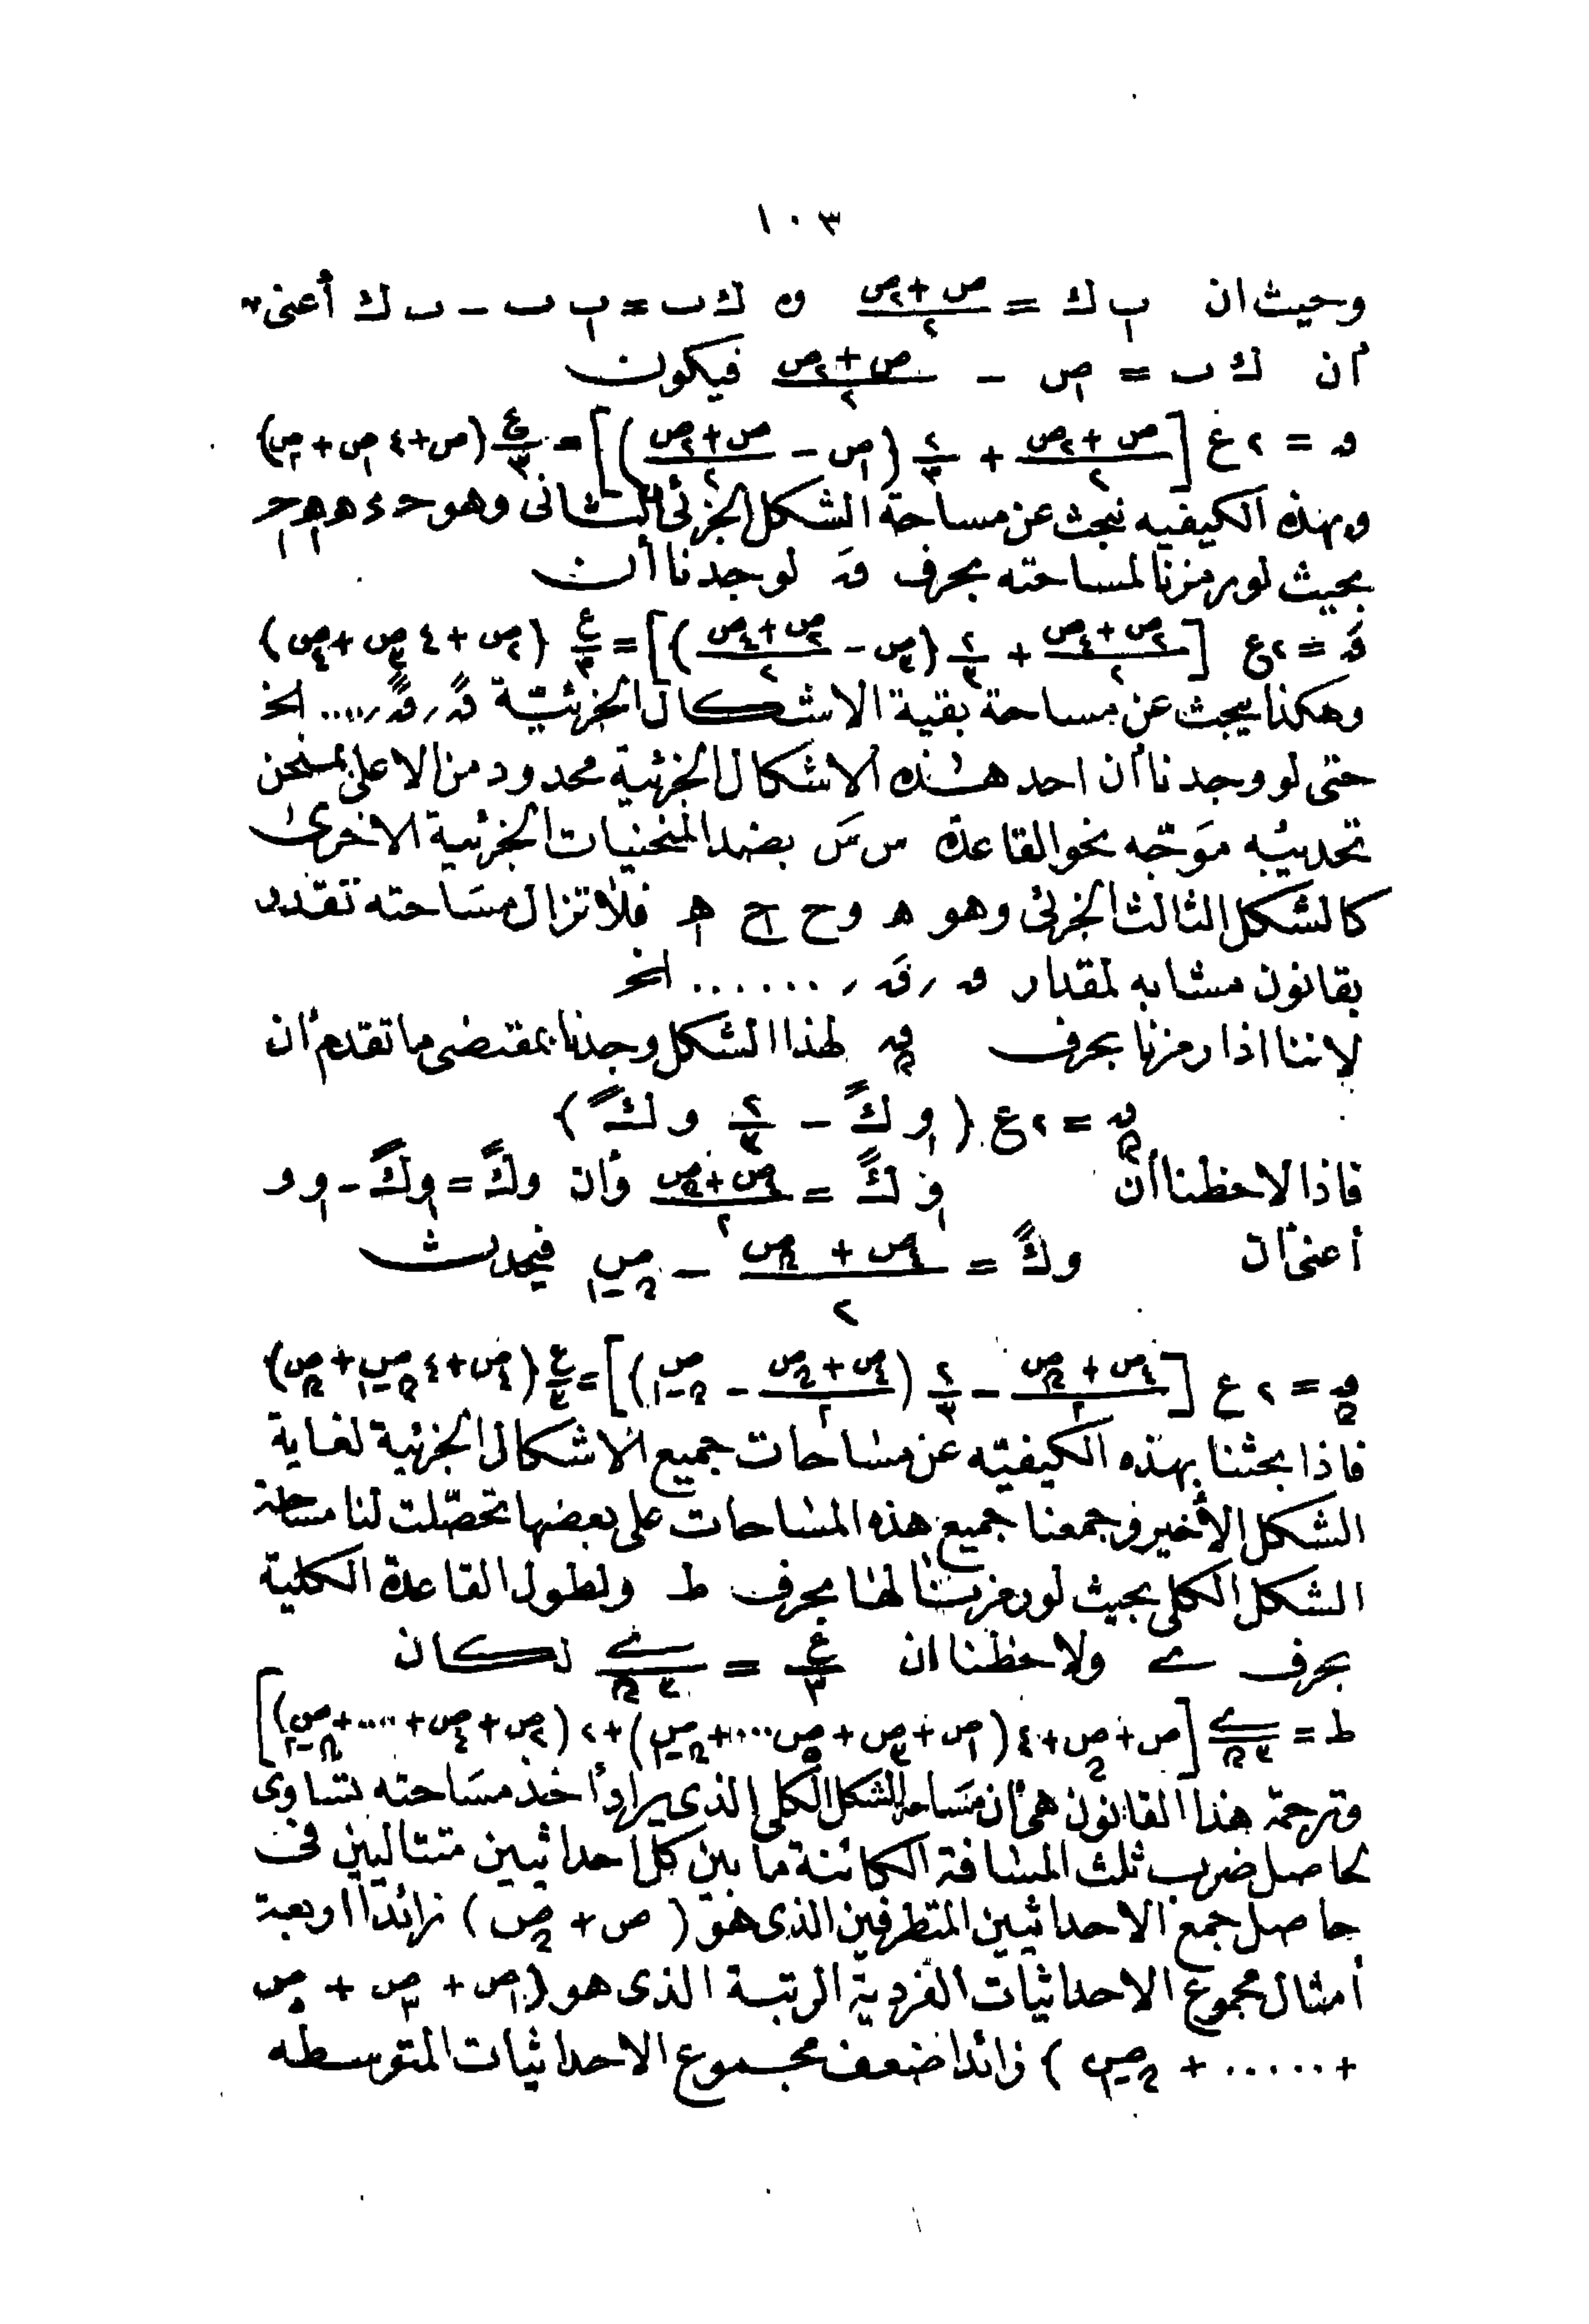 ١٠٣
وحيث ان ب₁ك = (ص+ص₂)/٢ و ك ب = ب₁ ب - ب₁ ك أعنى
أن ك ب = ص₁ - (ص+ص₂)/٢ فيكون
ق = ٢ع [(ص+ص₂)/٢ + ٢/٣ (ص₁ - (ص+ص₂)/٢)] = ع/٣ (ص+٤ص₁+ص₂)
وبهذه الكيفيه نبحث عن مساحة الشكل الجزئى الثانى وهو حـ ء ه ه₁ حـ₁
بحيث لو رمزنا لمساحته بحرف قَ لوجدنا أن
قَ = ٢ع [(ص₂+ص₄)/٢ + ٢/٣ (ص₃ - (ص₂+ص₄)/٢)] = ع/٣ (ص₂+٤ص₃+ص₄)
وهكذا يبحث عن مساحة بقية الاشكال الجزئيّة قً ر قً ر .... الخ
حتى لو وجدنا أن احد هذه الاشكال الجزئية محدود من الاعلى بمنحن
تحديبه موَجّه نحو القاعدة س سَ بضد المنحنيات الجزئية الاخرى
كالشكل الثالث الجزئى وهو ه و ح ح₁ ه₁ فلا تزال مسَاحته تقدر
بقانون مشابه لمقدار ق ر قَ ر ...... الخ
لاننا اذا رمزنا بحرف ق₂ لهذا الشكل وجدنا بمقتضى ما تقدم أن
ق₂ = ٢ع (و₁ كً - ٢/٣ و كً)
فاذا لاحظنا أن و₁ كً = (ص₄+ص₂)/٢ وأن و كً = و₁ كً - و₁ و
أعنى أن و كً = (ص₄+ص₂)/٢ - ص₂₋₁ فيحدث
ق₂ = ٢ع [(ص₄+ص₂)/٢ - ٢/٣ ((ص₄+ص₂)/٢ - ص₂₋₁)] = ع/٣ (ص₄+٤ص₂₋₁+ص₂)
فاذا بحثنا بهذه الكيفيّه عن مسَاحات جميع الاشكال الجزئية لغاية
الشكل الأخير وجمعنا جميع هذه المسَاحات على بعضها تحصّلت لنا مساحة
الشكل الكلى بحيث لو رمزنا لها بحرف ط ولطول القاعدة الكلية
بحرف ے ولاحظنا ان ع/٣ = ے/٣₂ لكان
ط = ے/٣₂ [ص+ص₂+٤(ص₁+ص₃+ص₅....+ص₂₋₁)+٢(ص₂+ص₄+....+ص₂₋₂)]
وترجمة هذا القانون هى أن مسَاحة الشكل الكلى الذى يراد أخذ مسَاحته تساوى
لحاصل ضرب ثلث المسَافة الكائنة ما بين كل احداثيين متتاليين فى
حاصل جمع الاحداثيين المتطرفين الذى هو (ص+ص₂) زائدا اربعة
أمثال مجموع الاحداثيات الفردية الرتبة الذى هو (ص₁+ص₃+ص₅
+......+ص₂₋₁) زائدا ضعف مجموع الاحداثيات المتوسطه